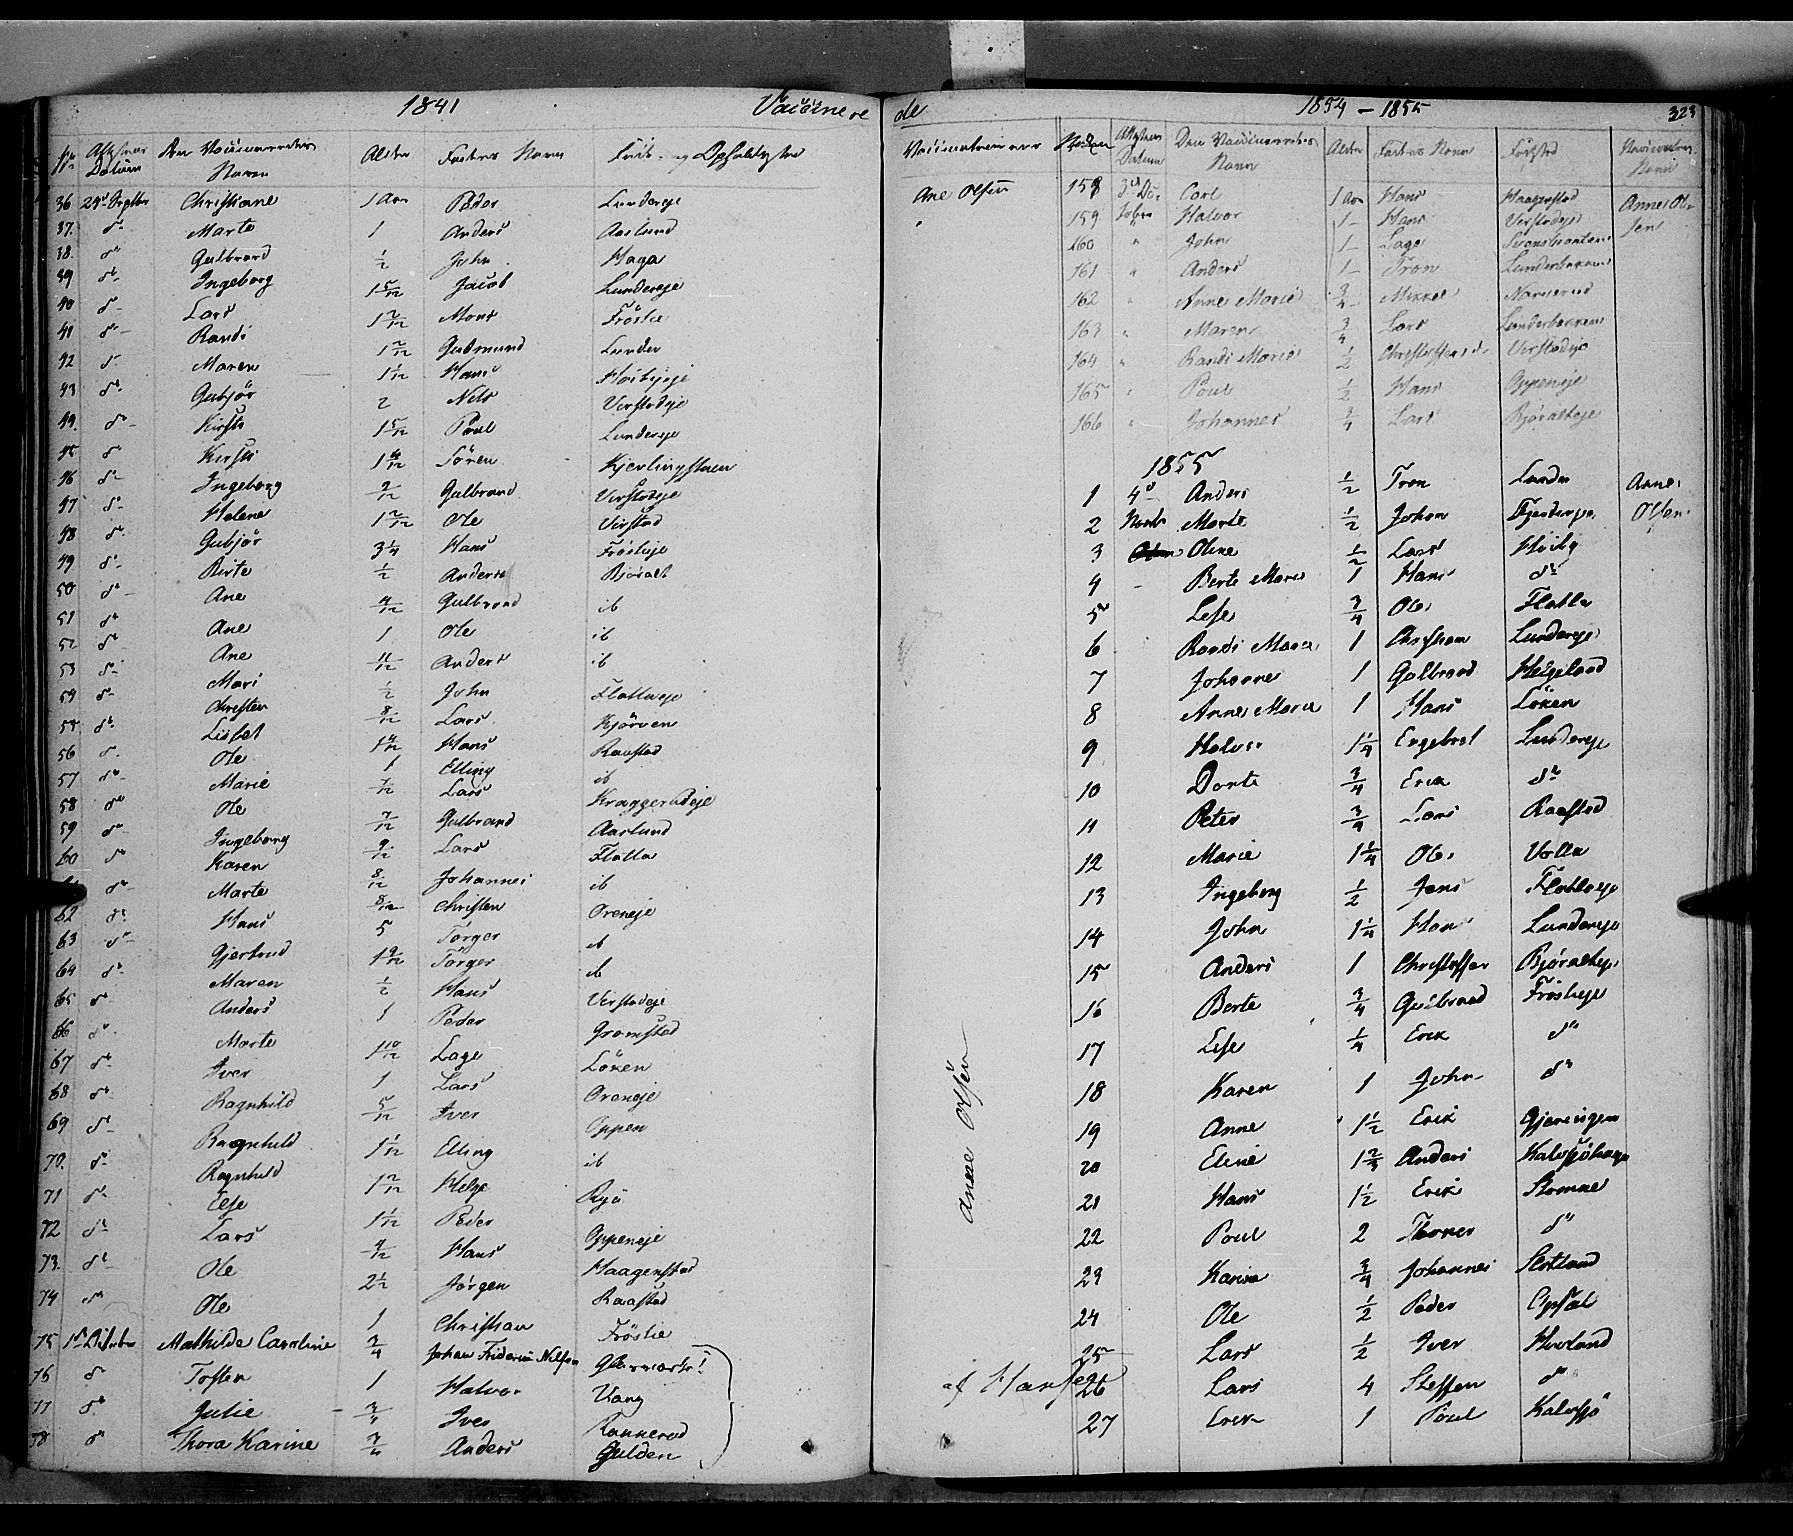 1841 Vaccinere
No Attestens Datum Den Vaccineredes Navn Alder Fadres Navn Føde- og Opholdssted
36 24d Septbr Christiane 1 Aar Peder Lundereje
37. do Marte 1 Anders Aaslund
38. do Gulbrand 1/2 John Haga
39 do Ingeborg 1 5/12 Jacob Lundereje
40 do Lars 1 2/12 Mons Fröslie
41 do Randi 1 2/12 Gudmund Lunder
42 do Maren 1 1/12 Hans Höibyeje
43 do Gubjör 2 Nils Virstadeje
44. do Kirsti 1 5/12 Poul Lundereje
45 do Kirsti 1 4/12 Sören Kjerlingsteen
46 do Ingeborg 9/12 Gulbrand Virstadeje
47 do Helene 1 2/12 Ole Virstad
48 do Gubjör 3 1/4 Hans Frösleje
49 do Birte 1/2 Anders Björalt
50 do Ane 4/12 Gulbrand ib
51 do Ane 1 Ole ib
52 do Ane 11/12 Anders ib
53 do Mari 1/2 John Flattaeje
54 do Christen 8/12 Lars Kjörven
55 do Lisbet 1 4/12 Hans Raastad
56 do Ole 1 Elling ib
57 do Marie 7/12 Lars Kraggerudeje
58 do Ole 7/12 Gulbrand Aaslund
59 do Ingeborg 9/12 Lars Flatla
60 do Karen 8/12 Johannes ib
do Marte 8/12 Christen Oreneje
62 do Hans 5 Torger ib
63 do Gjertrud 1 9/12 Torger ib
64 do Maren 1/2 Hans Virstadeje
65 do Anders 1 Peder Gromstad
66 do Marte 1 10/12 Lage Löken
67 do Iver 1 Lars Oreneje
68 do Ragnhild 5/12 Iver Oppen
69 do Ragnhild 1 1/12 Elling ib
70. do Ragnhild 1 2/12 Helge Rya
71 do Else 1 1/12 Peder Oppeneje
72 do Lars 4/12 Hans Haagenstad
73. do Ole 2 1/2 Jörgen Raastad
74 do Ole 1 Christian Fröslie
75 Mathilde Caroline 3/4 Johan Frideric Nilsen
76 do Tosten 1 Halvor Vang
77 do Julie 3/4 Iver Rannerud
78 do Thora Karine 3/4 Anders Gulden
de 1854 - 1855 323
Attestens Datum Den Vaccineredes Navn Alder Fadres Navn Födsted Navn
Ane Olsen 158 3d De- Carl 1 Aar Hans Haagenstad Anne Ol-
159 Halvor 1 Hans Virstadeje sen
160 " John 1 Lage
161 " Anders 1 Tron Lunderbakken
162 " Anne Marie 3/4 Mikkel Narverud
163 " Maren 3/4 Lars Lunderbakken
164 " Randi Marie 1/2 Christoffer Virstadeje
165 " Poul 1/2 Hans Oppeneje
166 " Johannes 3/4 Lars Björalteje
1855
1 4d Anders 1/2 Tron Lunder Anne
2 Novbr Marte 1/2 Johan Olsen
3 Oline 1/2 Lars Höiby
4 Berte Marie 1 Hans do
5 Lese 3/4 Ole Flatla
6 Randi Marie 1 Christian Lundereje
7 Johannes 1 Gulbrand Helgeland
8 Anne Marie 1 Hans Löken
9 Halvor 1 1/4 Engebret Lundereje
10 Dorte 3/4 Erik do
11 Peter 3/4 Lars Raastad
12 Marie 1 1/4 Ole Volla
13 Ingeborg 1/2 Jens Flatlaeje
14 John 1 1/4 Hans Lundereje
15 Anders 1 Christoffer Björalteje
16 Berte 3/4 Gulbrand Frösleje
17 Lise 1/4 Erik do
18 Karen 1 John do
19 Anne 1 1/2 Erik Gjeringen
20 Eline 1 2/3 Anders Kalvsjöhagen
21 Hans 1 1/2 Erik
22 Poul 2 Thomes do
23 Karine 3/4 Johannes Slotland
24 Ole 1/2 Peder Opsal
25 Lars 1/2 Iver Hovland
26 Lars 4 Steffen do
27 Erik 1 Poul Kalvsjö
Anne Olsen
af Hansen